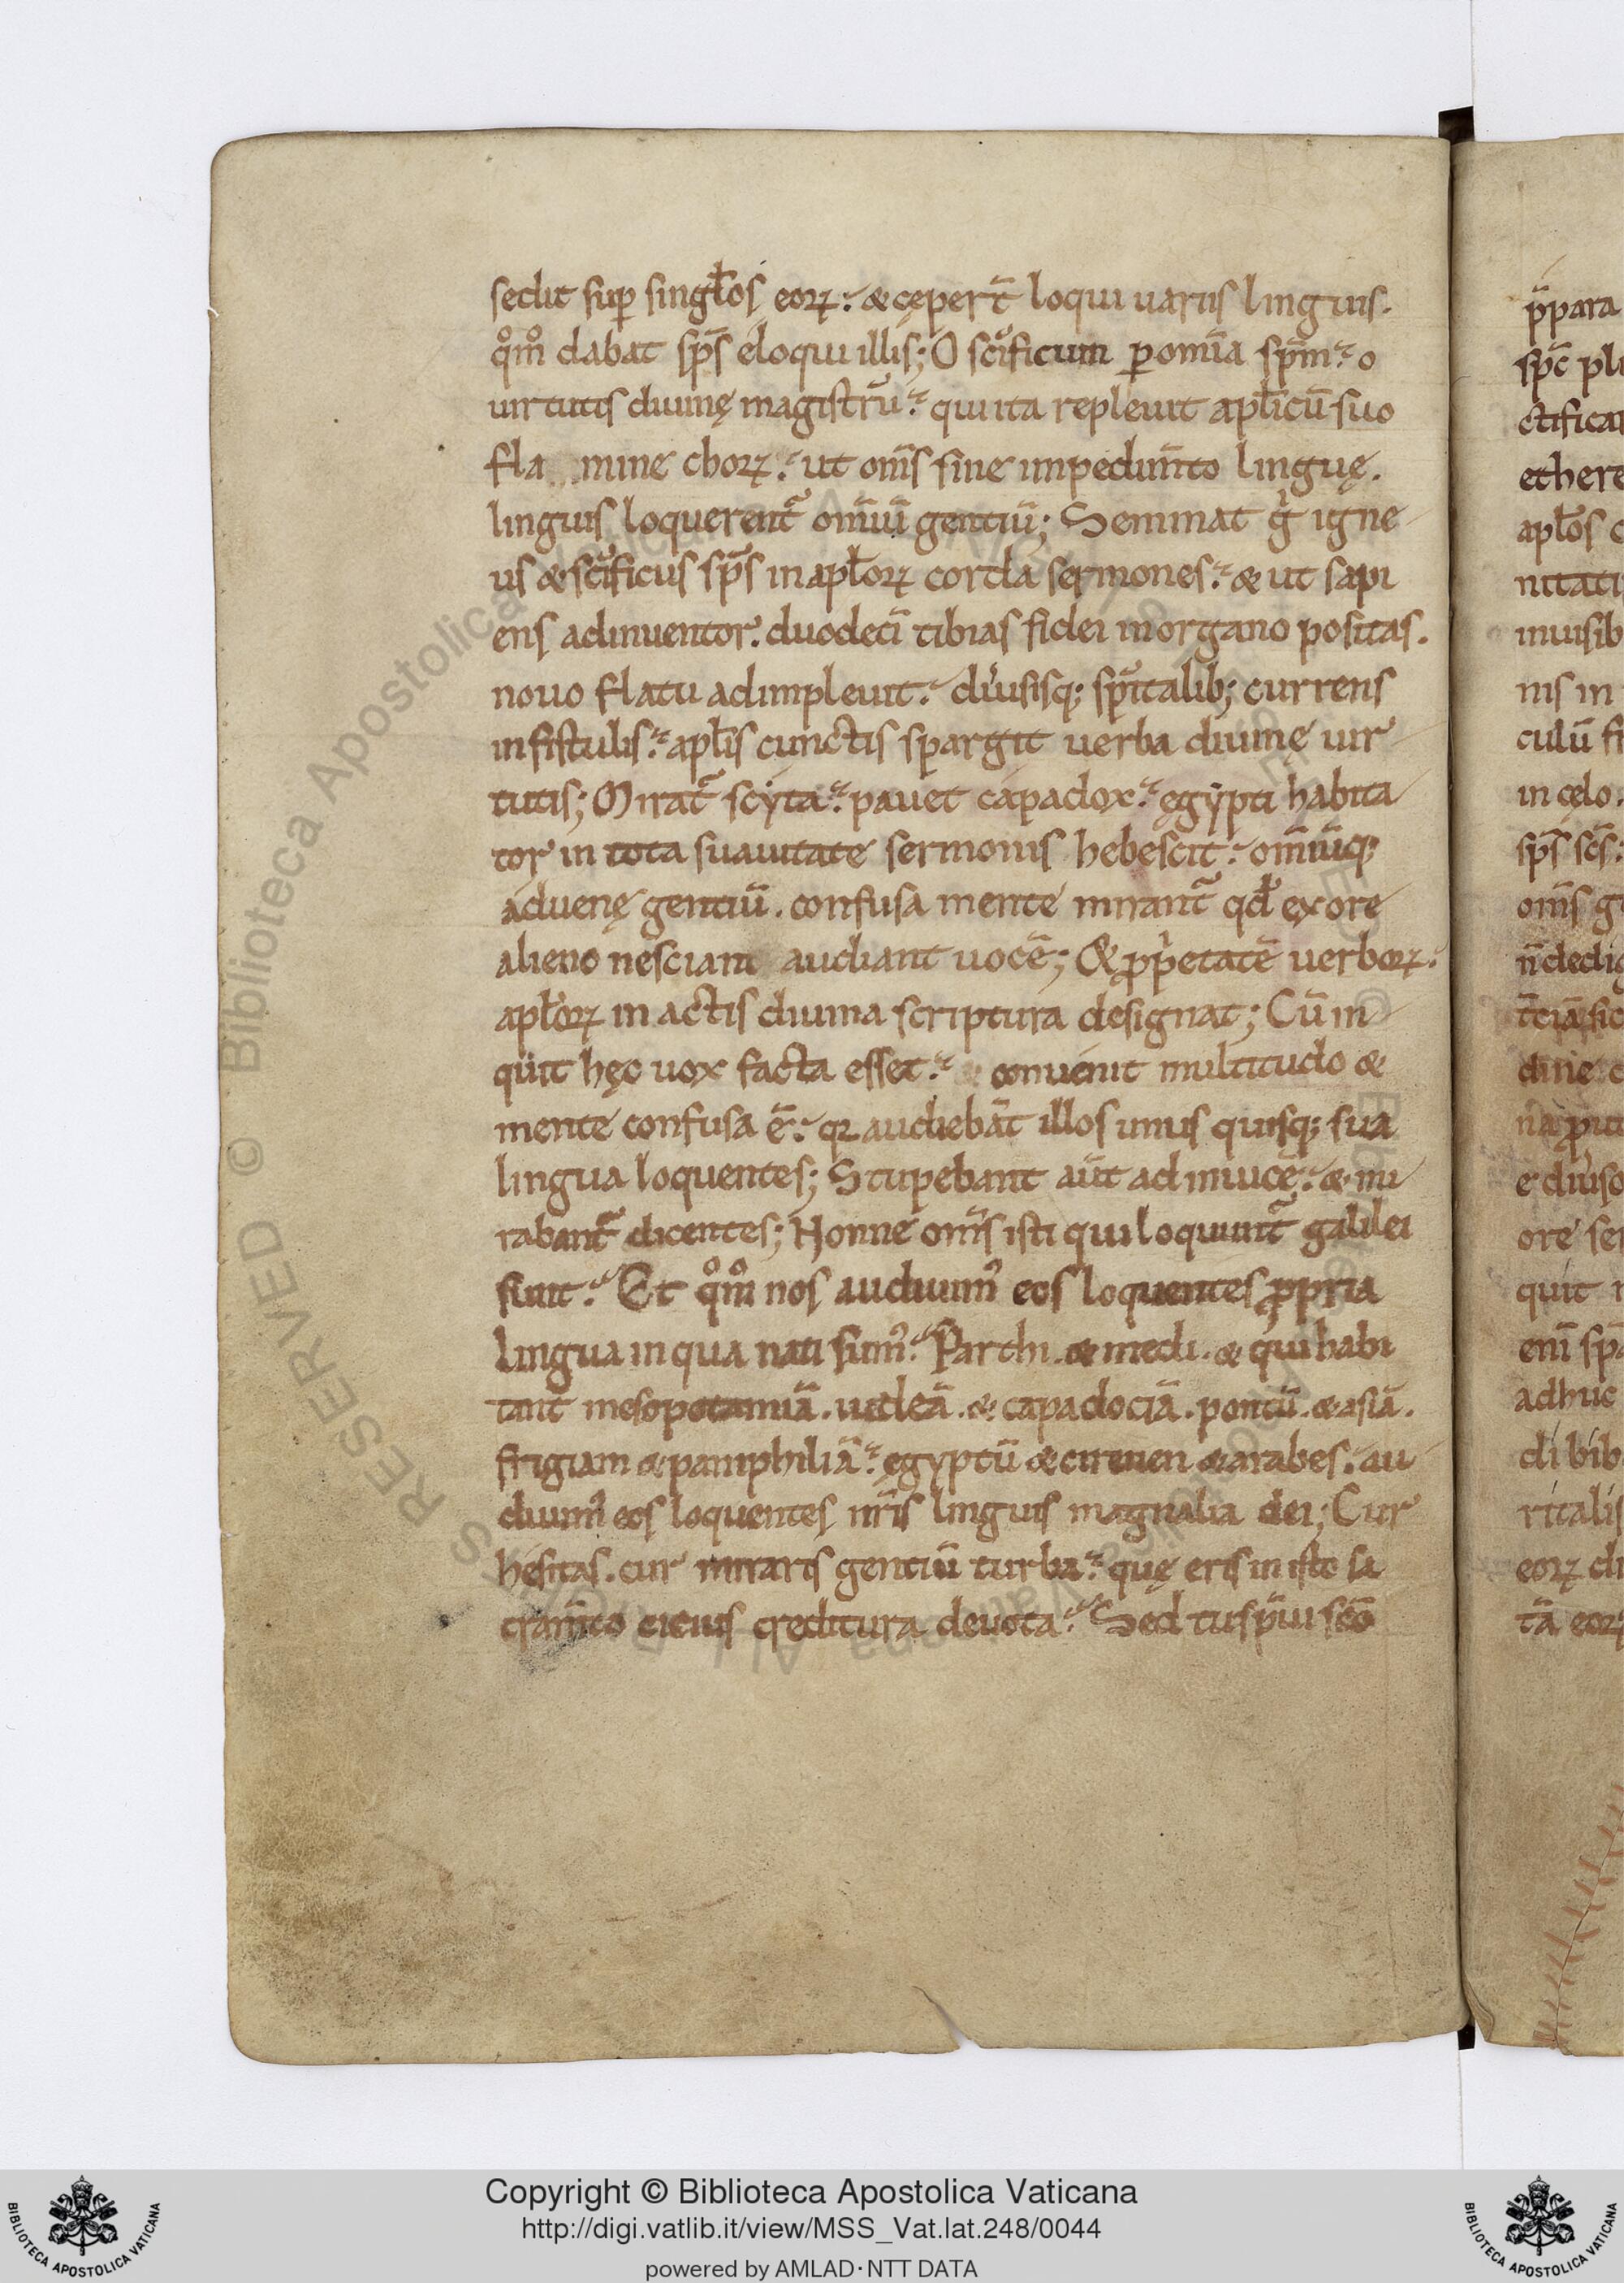 sedit sup̱ singłos eoꝝ. & cęper̄t loqui uariis linguis.
qm̊o dabat sp̄s eloqui illis; O sc̄ificum ꝑ om̄ia sp̄m. o
uirtutis diuinę magistrū. qui ita repleuit apłicū suo
fla mine choꝝ. ut om̄s sine impedim̄to linguę.
linguis loquerent̄ om̄iū gentiū; Seminat g̊ igne
us & sc̄ificus sp̄s in apłoꝝ corda sermones. & ut sapi
ens adinuentor. duodecī tibias fidei in organo positas.
nouo flatu adimpleuit. diu̓sisq; sp̄italib; currens
in fistulis. apłis cunctis spargit uerba diuinę uir
tutis; Mirat̄ scẏta. pauet capadox. ęgẏpti habita
tor in tota suauitate sermonis hebescit. om̄iūq;
aduenę gentiū. confusa mente mirant̄ qđ ex ore
alieno nesciam audiant uocē; & ꝓprietatē uerboꝝ.
apłoꝝ in actis diuina scriptura designat; Cū in
quit hęc uox facta esset. conuenit multitudo &
mente confusa ē. qꝛ audiebāt illos unus quisq; sua
lingua loquentes; Stupebant aūt ad inuicē. & mi
rabant̄ dicentes; Nonne om̄s isti qui loquunt̄ galilei
sunt. Et qm̊o nos audiuim᾽ eos loquentes ꝓpria
lingua in qua nati sum᾽. Parthi. & medi. & qui habi
tant mesopotamiā. iudeā. & capadociā. pontū. & asiā.
frigiam & pamphiliā. egyptū & cirenen & arabes. au
diuim᾽ eos loquentes nr̄is linguis magnalia dei; Cur
hesitas. cur miraris gentiū turba. quę eris in isto sa
cram̄to cicius creditura deuota. Sed tu sp̄ui sc̄o
Copyright © Biblioteca Apostolica Vaticana
http://digi.vatlib.it/view/MSS_Vat.lat.248/0044
powered by AMLAD·NTT DATA